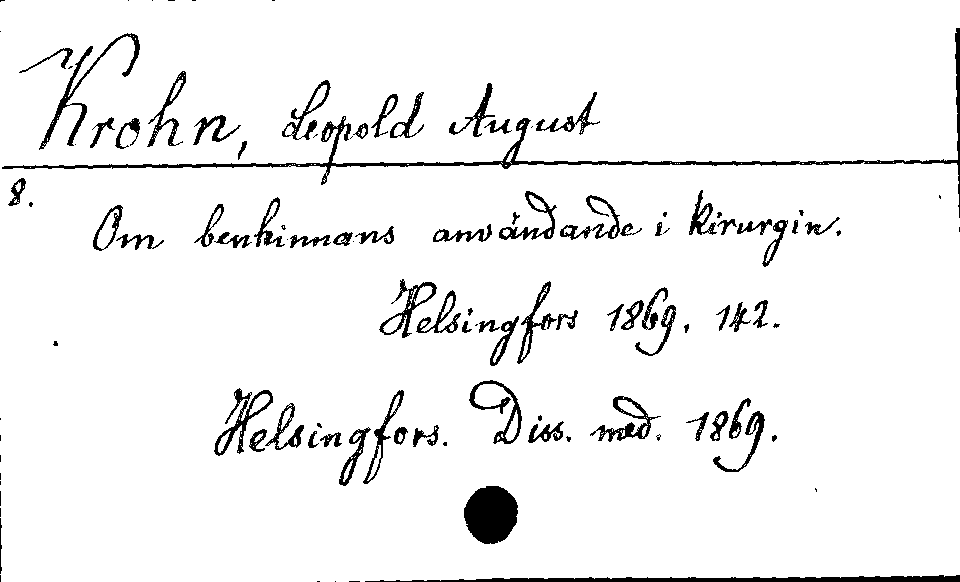 Krohn, Leopold August
8.
Om benhinnans användande i kirurgin.
Helsingfors 1869. 142.
Helsingfors. Diss. med. 1869.